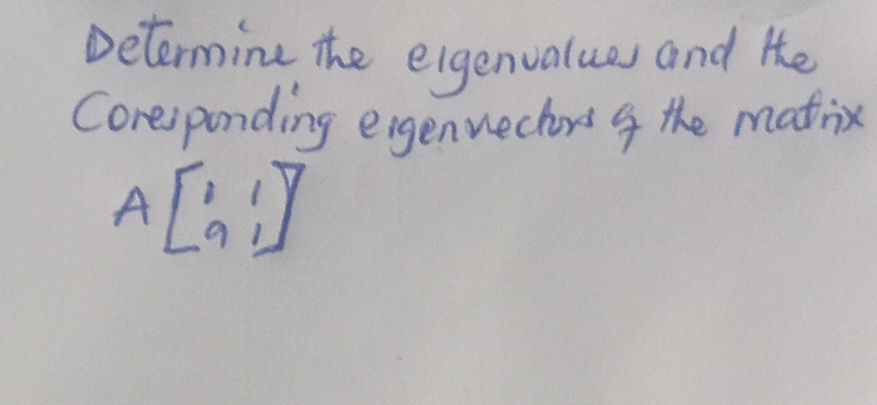 Determine the eigenvalues and the
Coresponding eigenvectors of the matrix
A [1 1
9 1]